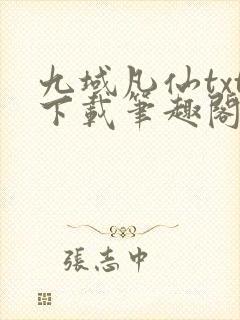 九域凡仙txt
下載筆趣閣
張志中